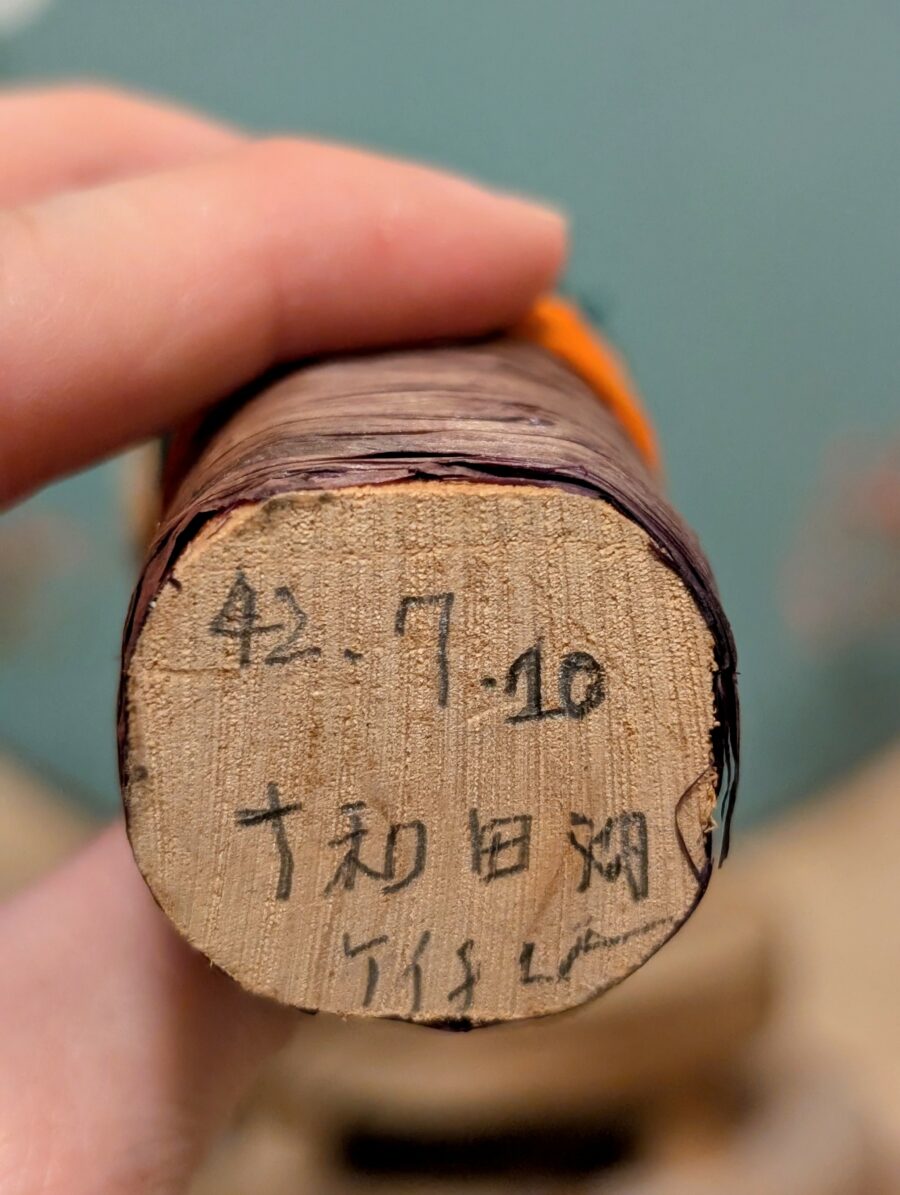 42.7.10
十和田湖